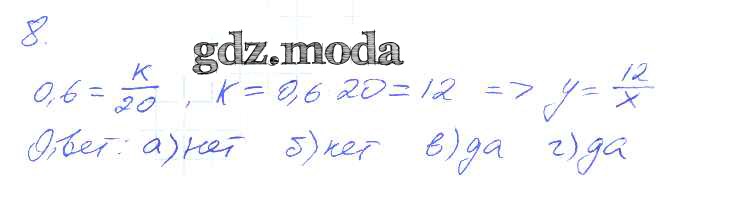 8.
gdz.moda
0,6 = к/20 , к = 0,6 20 = 12 => y = 12/x
Ответ: а) нет б) нет в) да г) да